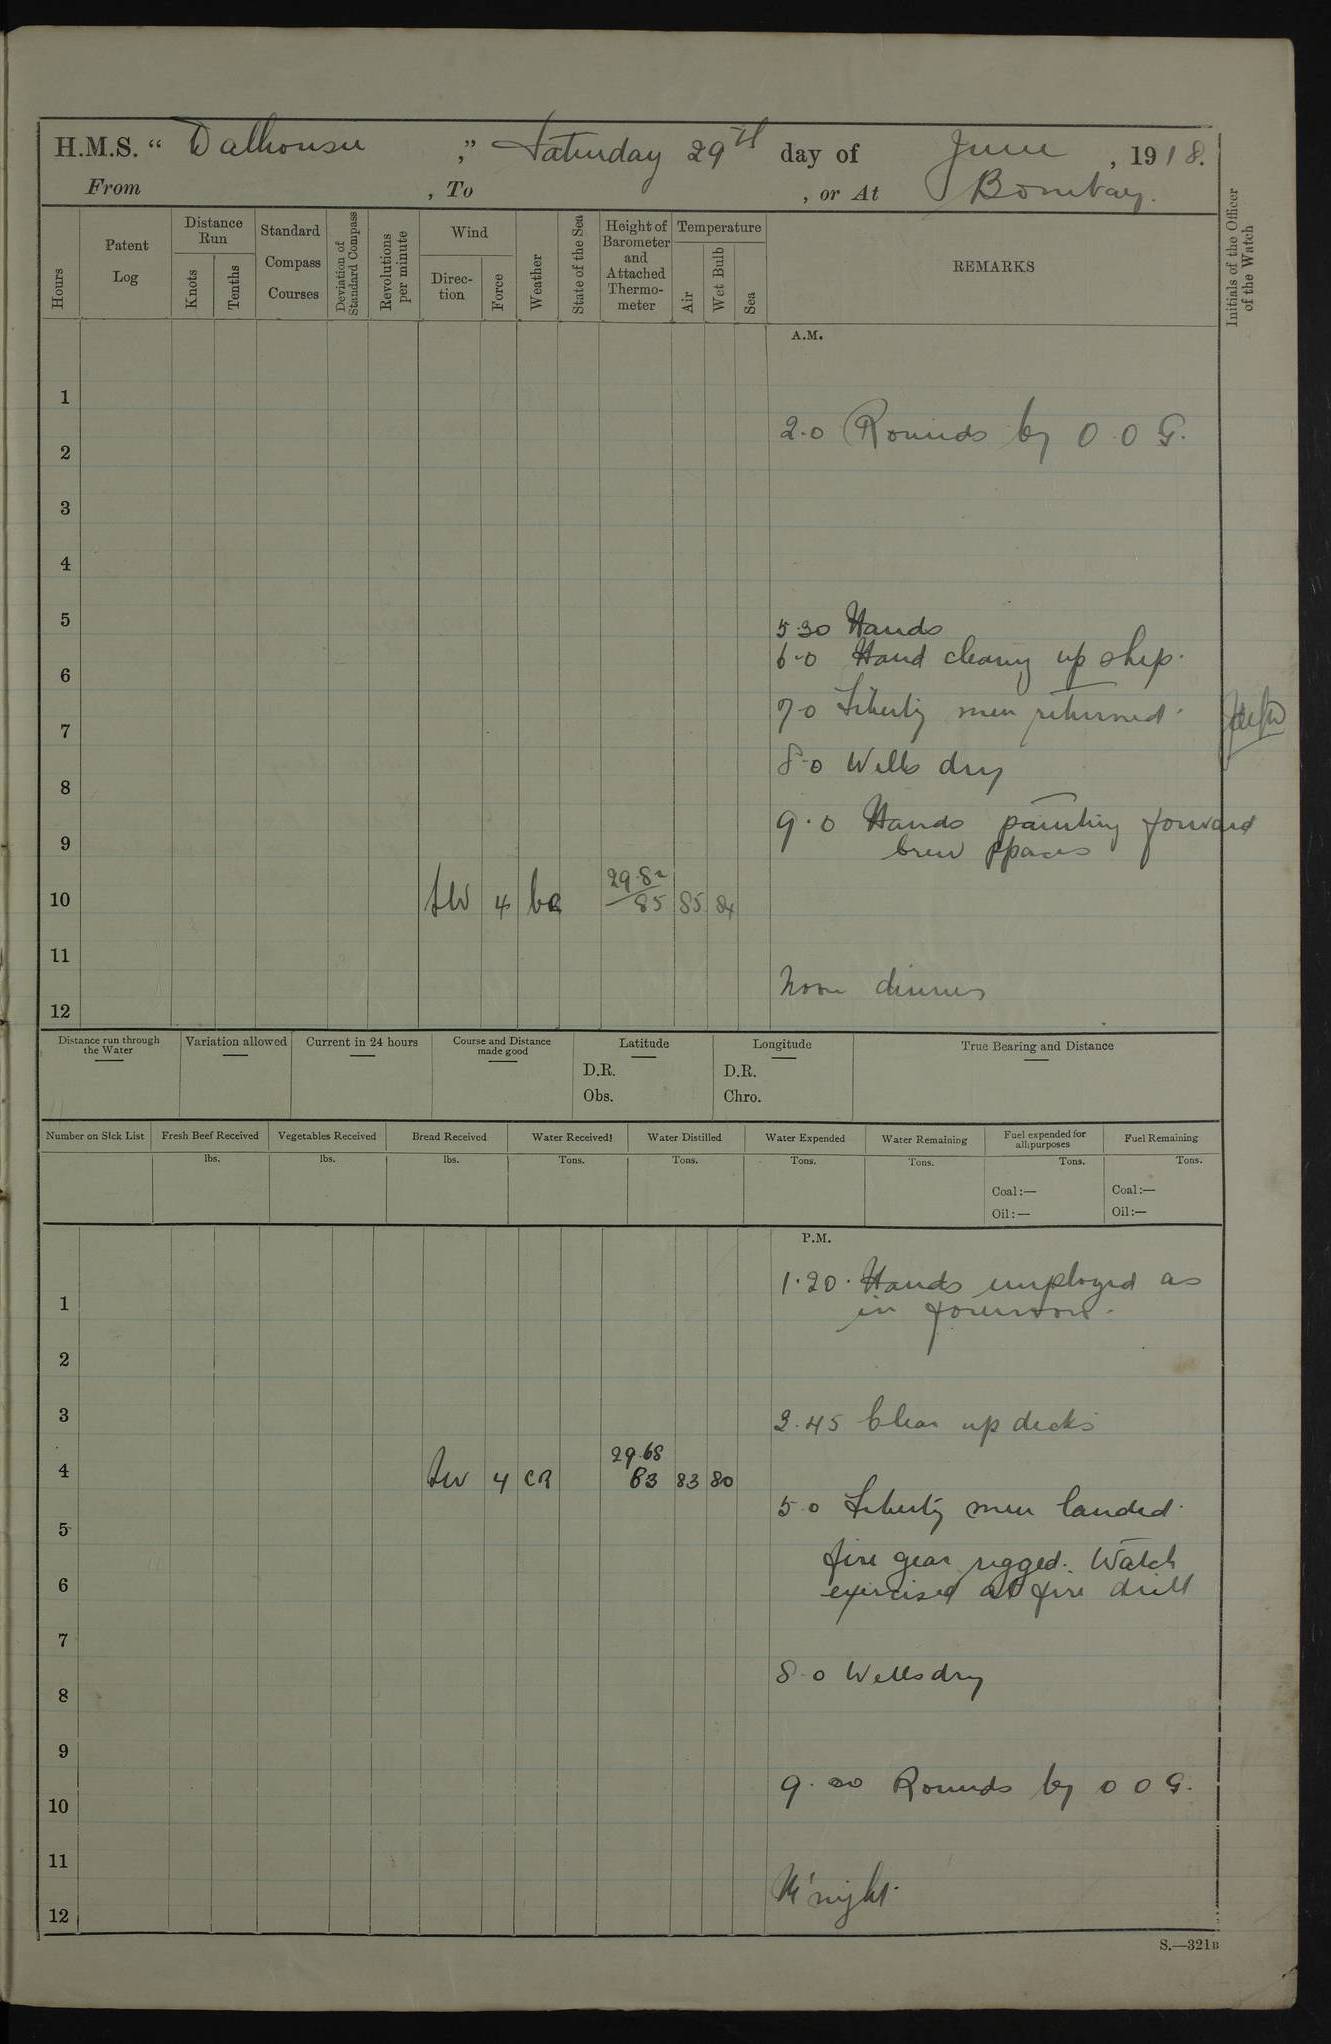 H.M.S. “ Dalhousie ,” Saturday 29th day of June , 1918.
From , To , or At Bombay.
Hours
Patent Log
Distance Run
Knots
Tenths
Standard Compass Courses
Deviation of Standard Compass
Revolutions per minute
Wind
Direc-tion
Force
Weather
State of the Sea
Height of Barometer and Attached Thermo-meter
Temperature
Air
Wet Bulb
Sea
REMARKS
Initials of the Officer of the Watch
A.M.
1
2.0 Rounds by O.O.G.
2
3
4
5
5.30 Hands
6.0 Hand cleaning up ship.
6
7.0 Liberty men returned.
7
8.0 Wells dry
8
9.0 Hands painting forward
9
crew spaces
29.82
10 SW 4 bc 85 85 84
11
Noon dinners
12
Distance run through the Water
Variation allowed
Current in 24 hours
Course and Distance made good
Latitude
D.R.
Obs.
Longitude
D.R.
Chro.
True Bearing and Distance
Number on Sick List
Fresh Beef Received
lbs.
Vegetables Received
lbs.
Bread Received
lbs.
Water Received
Tons.
Water Distilled
Tons.
Water Expended
Tons.
Water Remaining
Tons.
Fuel expended for all purposes
Tons.
Coal:—
Oil:—
Fuel Remaining
Tons.
Coal:—
Oil:—
P.M.
1.20. Hands employed as
1 in forenoon.
2
3 3.45 Clear up decks
29.68
4 SW 4 CR 83 83 80
5.0 Liberty men landed.
5
fire gear rigged. Watch
6 exercised at fire drill
7
8.0 Wells dry
8
9
9.00 Rounds by O O G.
10
11
M'night.
12
S.—321B